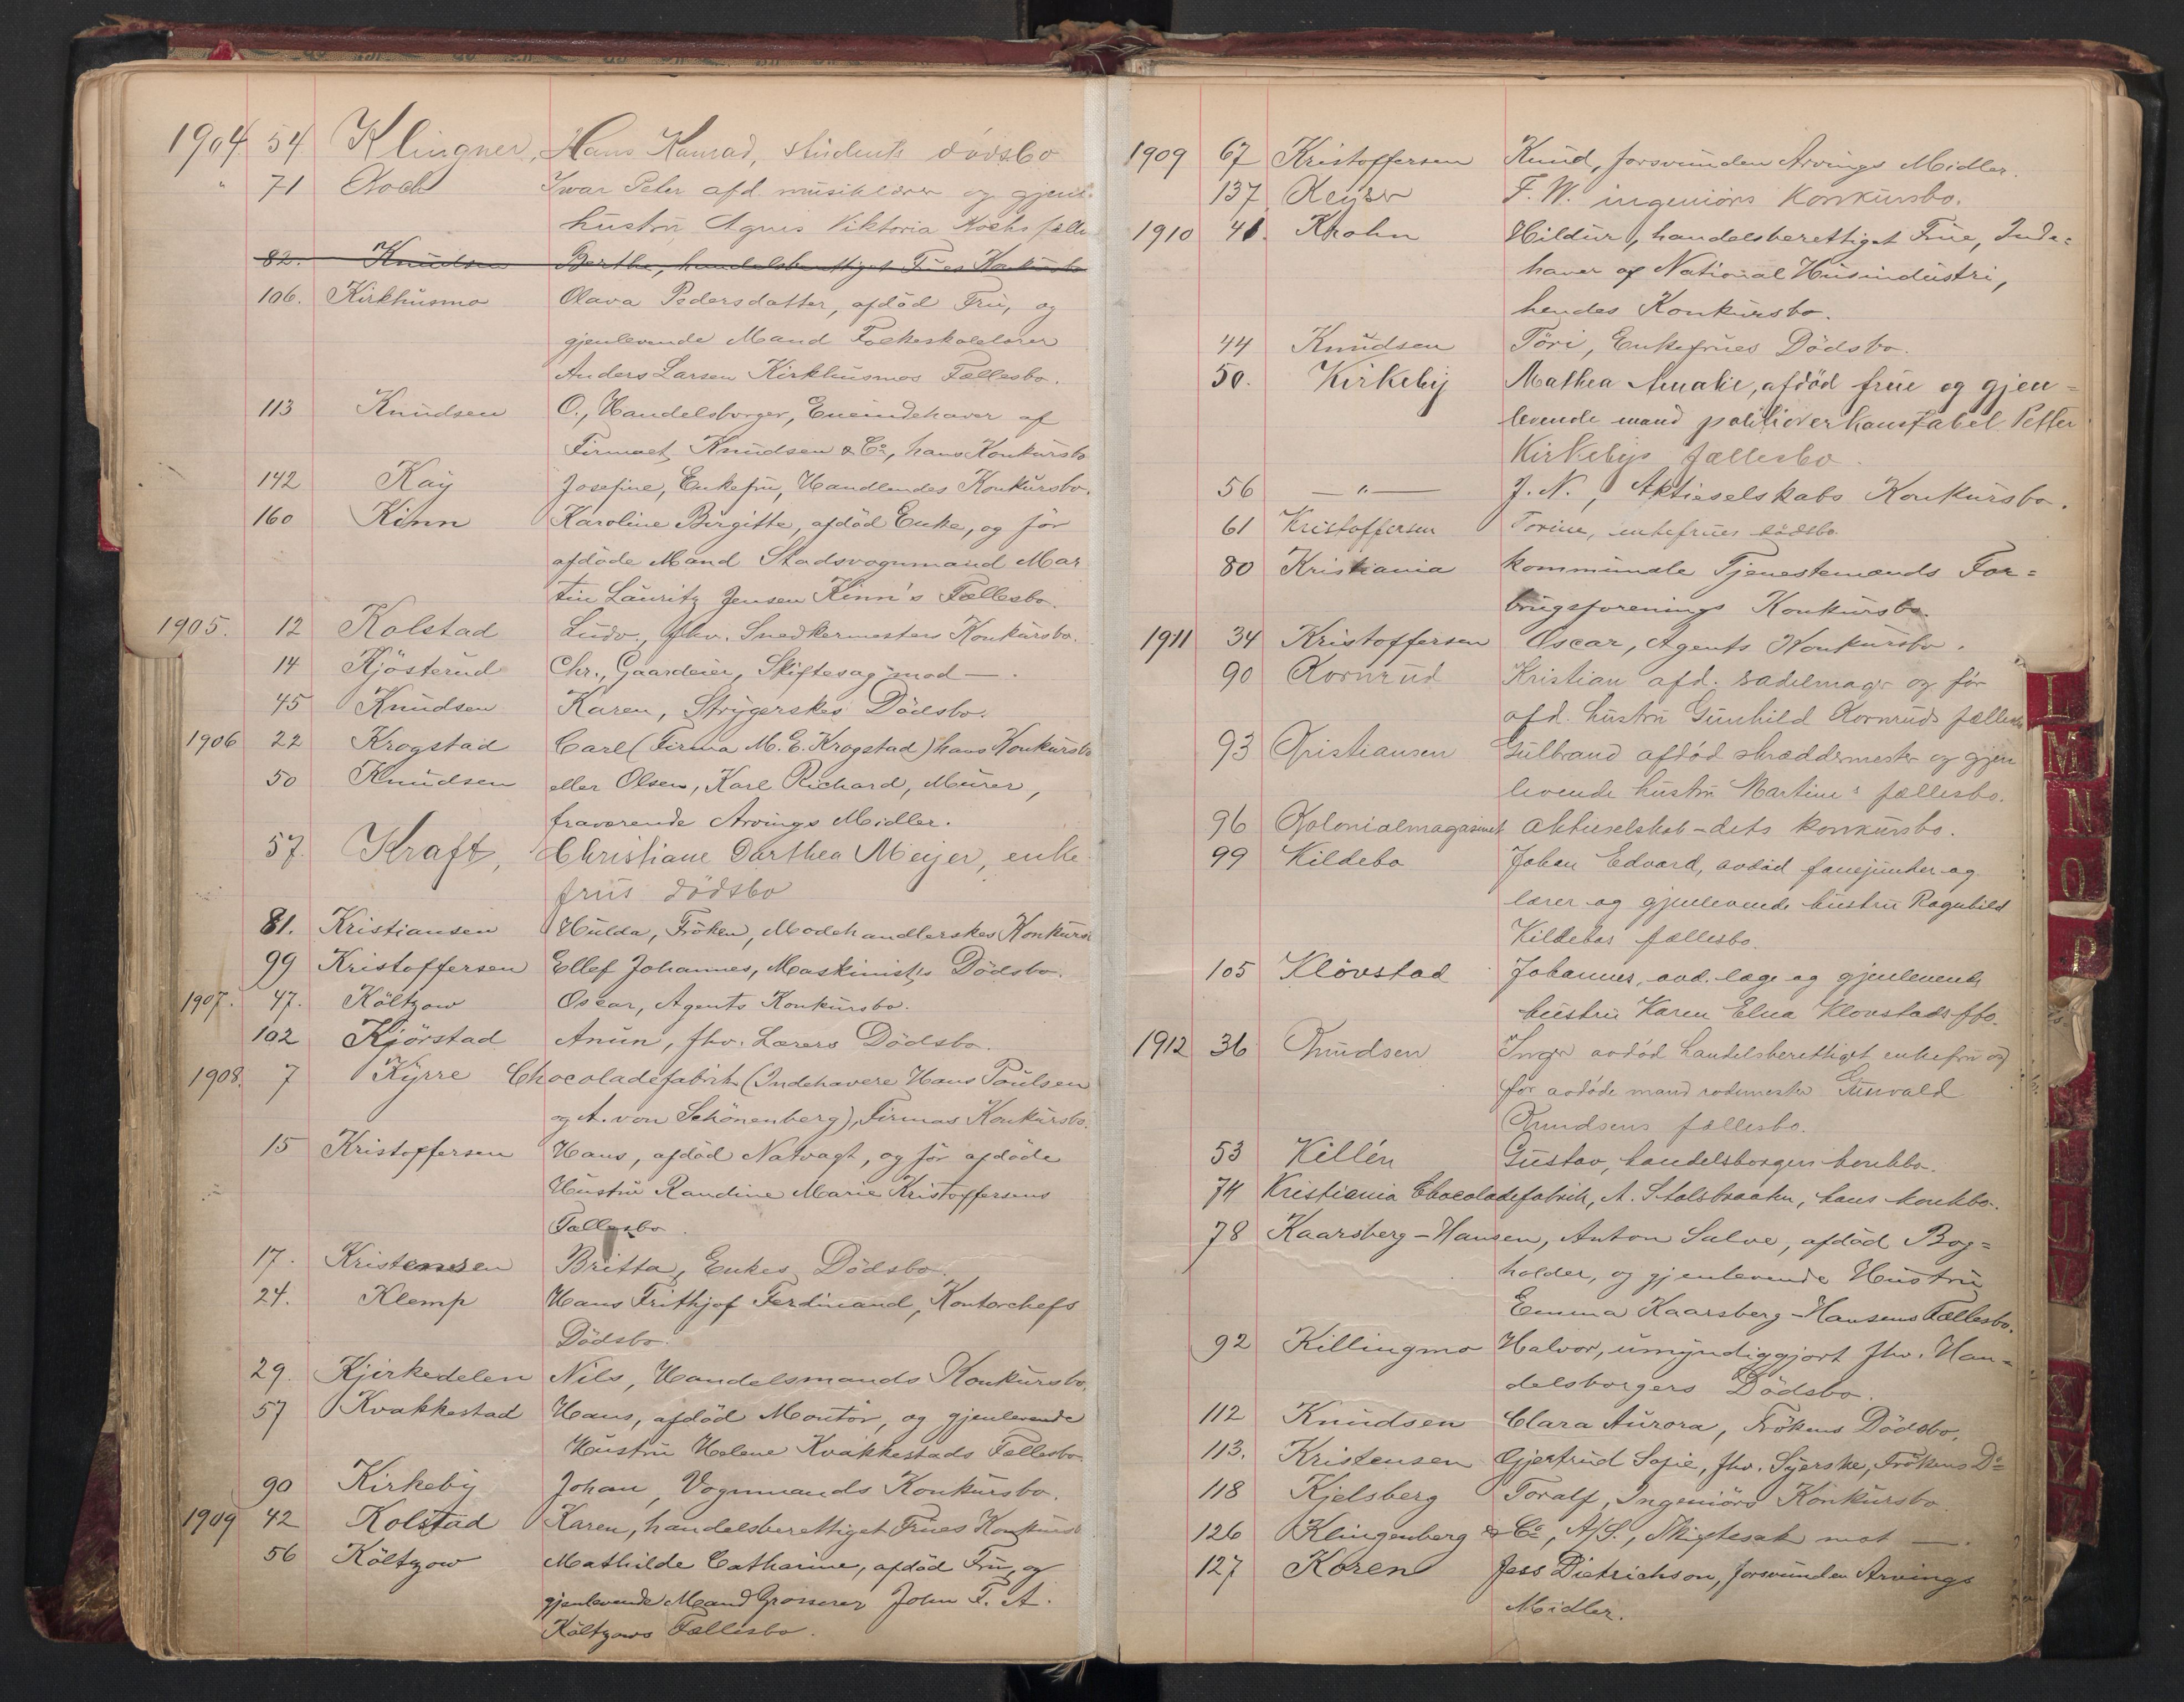 1904 54 Klingner, Hans Konrad, students dødsbo
" 71 Koch Ivar Peter afd. musiklærer og gjenl.
hustru Agnes Viktoria Kochs fælle
82. Knudsen Berthe, handelsberettiget Frues Konkursbo
106. Kirkhusmo Olava Pedersdatter, afdöd Fru, og
gjenlevende Mand Folkeskolelærer
Anders Larsen Kirkhusmos Fællesbo.
113 Knudsen O., Handelsborger, Eneindehaver af
Firmaet Knudsen & Co, hans Konkursbo
142 Kay Josefine, Enkefru, Handlendes Konkursbo.
160 Kinn Karoline Birgitte, afdöd Enke, og før
afdöde Mand Stadsvognmand Mar
tin Lauritz Jensen Kinn's Fællesbo.
1905. 12 Kolstad Ludv., fhv. Snedkermesters Konkursbo.
14 Kjösterud Chr., Gaardeier, Skiftesag mod — .
45 Knudsen Karen, Strygerskes Dödsbo.
1906 22 Krogstad Carl (Firma M. E. Krogstad) hans Konkursbo
50 Knudsen eller Olsen, Karl Richard, Murer,
fraværende Arvings Midler.
57. Kraft, Christiane Dorthea Meijer, enke
frus dödsbo
81. Kristiansen Hulda, Fröken, Modehandlerskes Konkurs
99 Kristoffersen Ellef Johannes, Maskinists Dödsbo.
1907. 47. Költzow Oscar, Agents Konkursbo.
102 Kjörstad Anun, fhv. Lærers Dödsbo.
1908. 7 Kyrre Chocoladefabrik (Indehavere Hans Poulsen
og A. von Schönenberg), Firmas Konkursbo.
15 Kristoffersen Hans, afdöd Natvagt, og för afdöde
Hustru Randine Marie Kristoffersens
Fællesbo.
17. Kristensen Britta, Enkes Dödsbo.
24. Klemp Hans Frithjof Ferdinand, Kontorchefs
Dödsbo.
29. Kjirkedelen Nils, Handelsmands Konkursbo.
57 Kvakkestad Hans, afdöd Montör, og gjenlevende
Hustru Helene Kvakkestads Fællesbo
90 Kirkeby Johan, Vognmands Konkursbo.
1909 42 Kolstad Karen, handelsberettiget Frues Konkursb
56 Költzow Mathilde Catharine, afdöd Fru, og
gjenlevende Mand Grosserer John F. A.
Költzows Fællesbo.
1909 67 Kristoffersen Knud, forsvunden Arvings Midler.
137 Keyser F. W. ingeniörs Konkursbo.
1910 41. Krohn Hildur, handelsberettiget Frue, Inde=
haver af National Husindustri,
hendes Konkursbo.
44 Knudsen Töri, Enkefrues Dödsbo.
50. Kirkeby Mathea Amalie, afdöd frue og gjen=
levende mand politioverkonstabel Petter
Kirkebys fællesbo.
56 — " — J. N., Aktieselskabs Konkursbo.
61 Kristoffersen Torine, enkefrues dödsbo.
80 Kristiania kommunale Tjenestemænds For=
brugsforenings Konkursbo.
1911 34 Kristoffersen Oscar, Agents Konkursbo.
90 Kornrud Kristian afd. sadelmager og før
afd. hustru Gunhild Kornruds fællesb
93 Kristiansen Gulbrand afdød skræddermester og gjen
levende hustru Martines fællesbo.
96 Kolonialmagasinet aktieselskab – dets konkursbo.
99 Kildebo Johan Edvard, avdöd fanejunker og
lærer og gjenlevende hustru Ragnhild
Kildebos fællesbo.
105 Klövstad Johannes, avd. læge og gjenlevende
hustru Karen Elna Klovstads ffbo.
1912 36 Knudsen Inga avdød handelsberettiget enkefru og
før avdøde mand rodemester Gunvald
Knudsens fællesbo.
53 Killén Gustav, handelsborgers konkbo.
74 Kristiania Chocoladefabrik, A. Stolsbraaten, hans konkbo.
78 Kaarsberg-Hansen, Anton Salve, afdöd Bog=
holder, og gjenlevende Hustru
Emma Kaarsberg-Hansens Fællesbo.
92 Killingmo Halvor, umyndiggjort fhv. Han=
delsborgers Dödsbo.
112 Knudsen Clara Aurora, Frökens Dödsbo.
113. Kristensen Gjertrud Sofie, fhv. Syerske, Frökens Do
118 Kjelsberg Toralf, Ingeniörs Konkursbo.
126 Klingenberg & Co, A/S., Skiftesak mot —.
127 Koren Jess Dietrichson, forsvunden Arvings
Midler.
L
M
N
O
P
U
V
X
Y